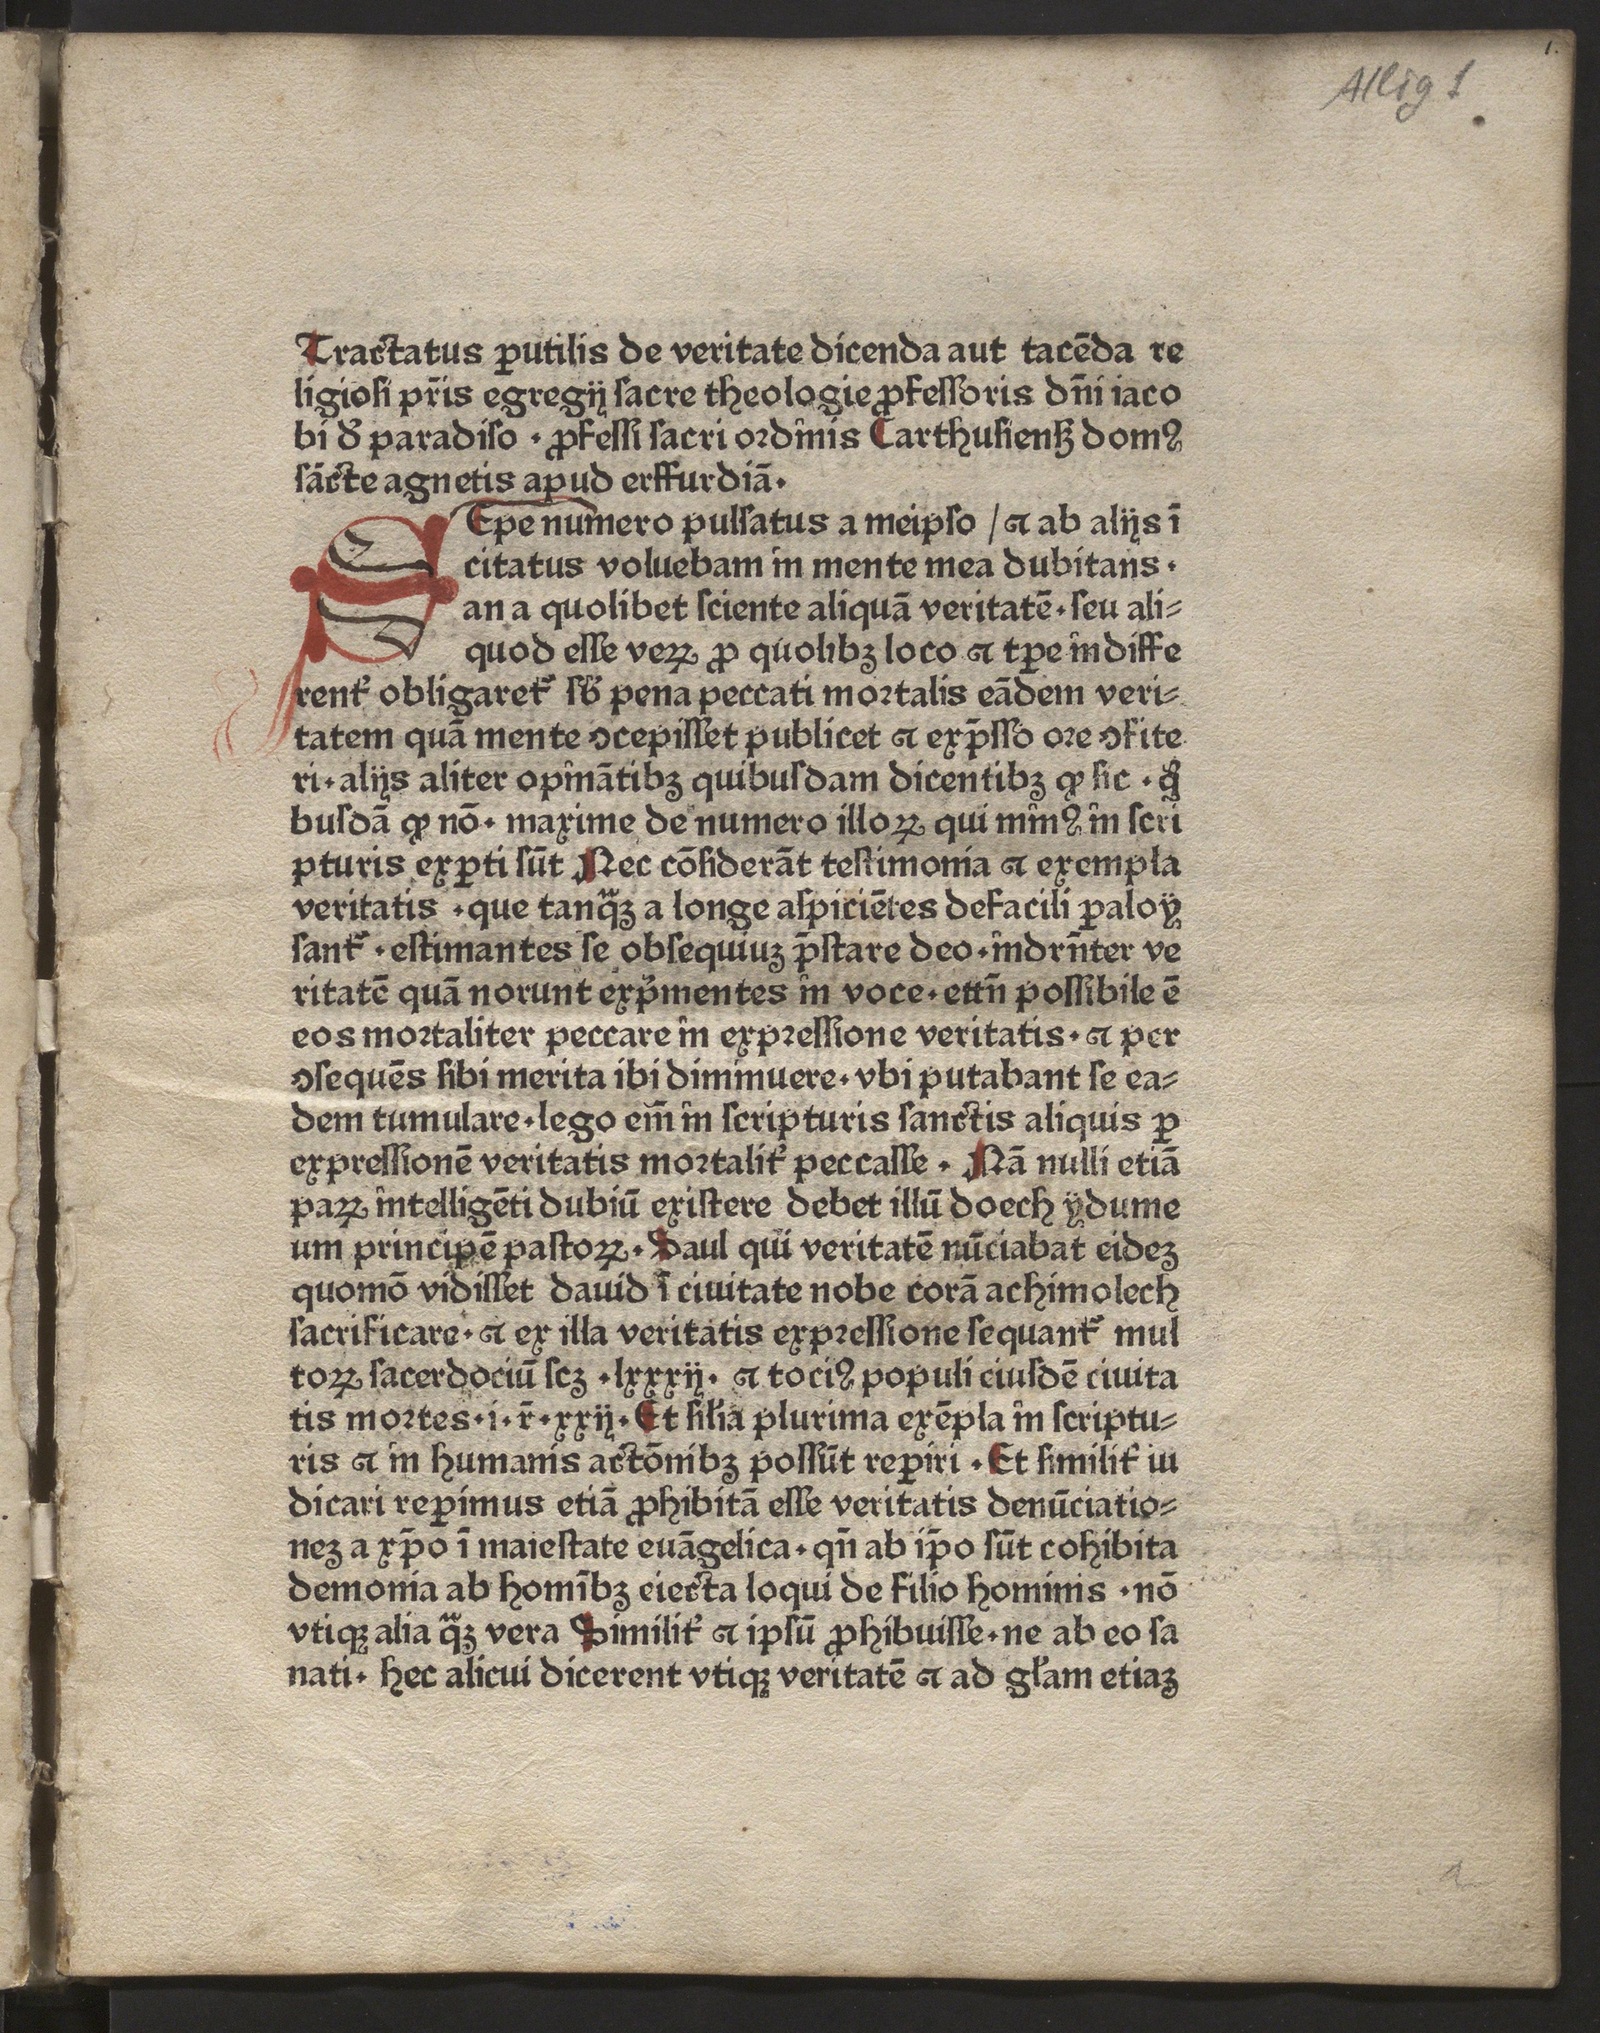 1.
Allig 1
Tractatus ꝑutilis de veritate dicenda aut tacēda re
ligiosi pr̄is egregij sacre theologie ꝓfessoris dn̄i iaco
bi d̕ paradiso · ꝓfessi sacri ordinis Carthusienß domꝰ
sācte agnetis apud erffurdiā·
SEpe numero pulsatus a meipso / ⁊ ab alijs ī
citatus voluebam in mente mea dubitans·
an a quolibet sciente aliquā veritatē· seu ali⸗
quod esse veꝝ ꝓ quolibꝫ loco ⁊ tꝑe indiffe
rent̕ obligaret̕ sb̕ pena peccati mortalis eādem veri⸗
tatem quā mente ꝯcepisset publicet ⁊ exp̄sso ore ꝯfite
ri· alijs aliter opinātibꝫ quibusdam dicentibꝫ ꝙ sic · qͥ
busdā ꝙ nō· maxime de numero illoꝝ qui minꝰ in scri
pturis exꝑti sūt Nec cōsiderāt testimonia ⁊ exempla
veritatis · que tanqᷓꝫ a longe aspiciētes defacili ꝑaloÿ
sant̕ · estimantes se obsequiuꝫ p̄stare deo· indrn̄ter ve
ritatē quā norunt exp̕mentes in voce· ettn̄ possibile ē
eos mortaliter peccare in expressione veritatis· ⁊ per
ꝯsequēs sibi merita ibi diminuere· vbi putabant se ea⸗
dem tumulare· lego em̄ in scripturis sanctis aliquis ꝑ
expressionē veritatis mortalit̕ peccasse · Nā nulli etiā
paꝝ intelligēti dubiū existere debet illū doech ÿdume
um principē pastoꝝ· Saul qui veritatē nūciabat eideꝫ
quomō vidisset dauid ī ciuitate nobe corā achimolech
sacrificare· ⁊ ex illa veritatis expressione sequant̕ mul
toꝝ sacerdociū scꝫ ·lxxxij· ⁊ tociꝰ populi eiusdē ciuita
tis mortes· i· r̄· xxij· Et sil̕ia plurima exēpla in scriptu⸗
ris ⁊ in humanis actōnibꝫ possūt reꝑiri · Et similit̕ iu
dicari reꝑimus etiā ꝓhibitā esse veritatis denūciatio⸗
neꝫ a xp̄o ī maiestate euāgelica· qn̄ ab ip̄o sūt cohibita
demonia ab homībꝫ eiecta loqui de filio hominis · nō
vtiqꝫ alia qᷓꝫ vera Similit̕ ⁊ ipsū ꝓhibuisse· ne ab eo sa
nati· hec alicui dicerent vtiqꝫ veritatē ⁊ ad gl̕am etiaꝫ